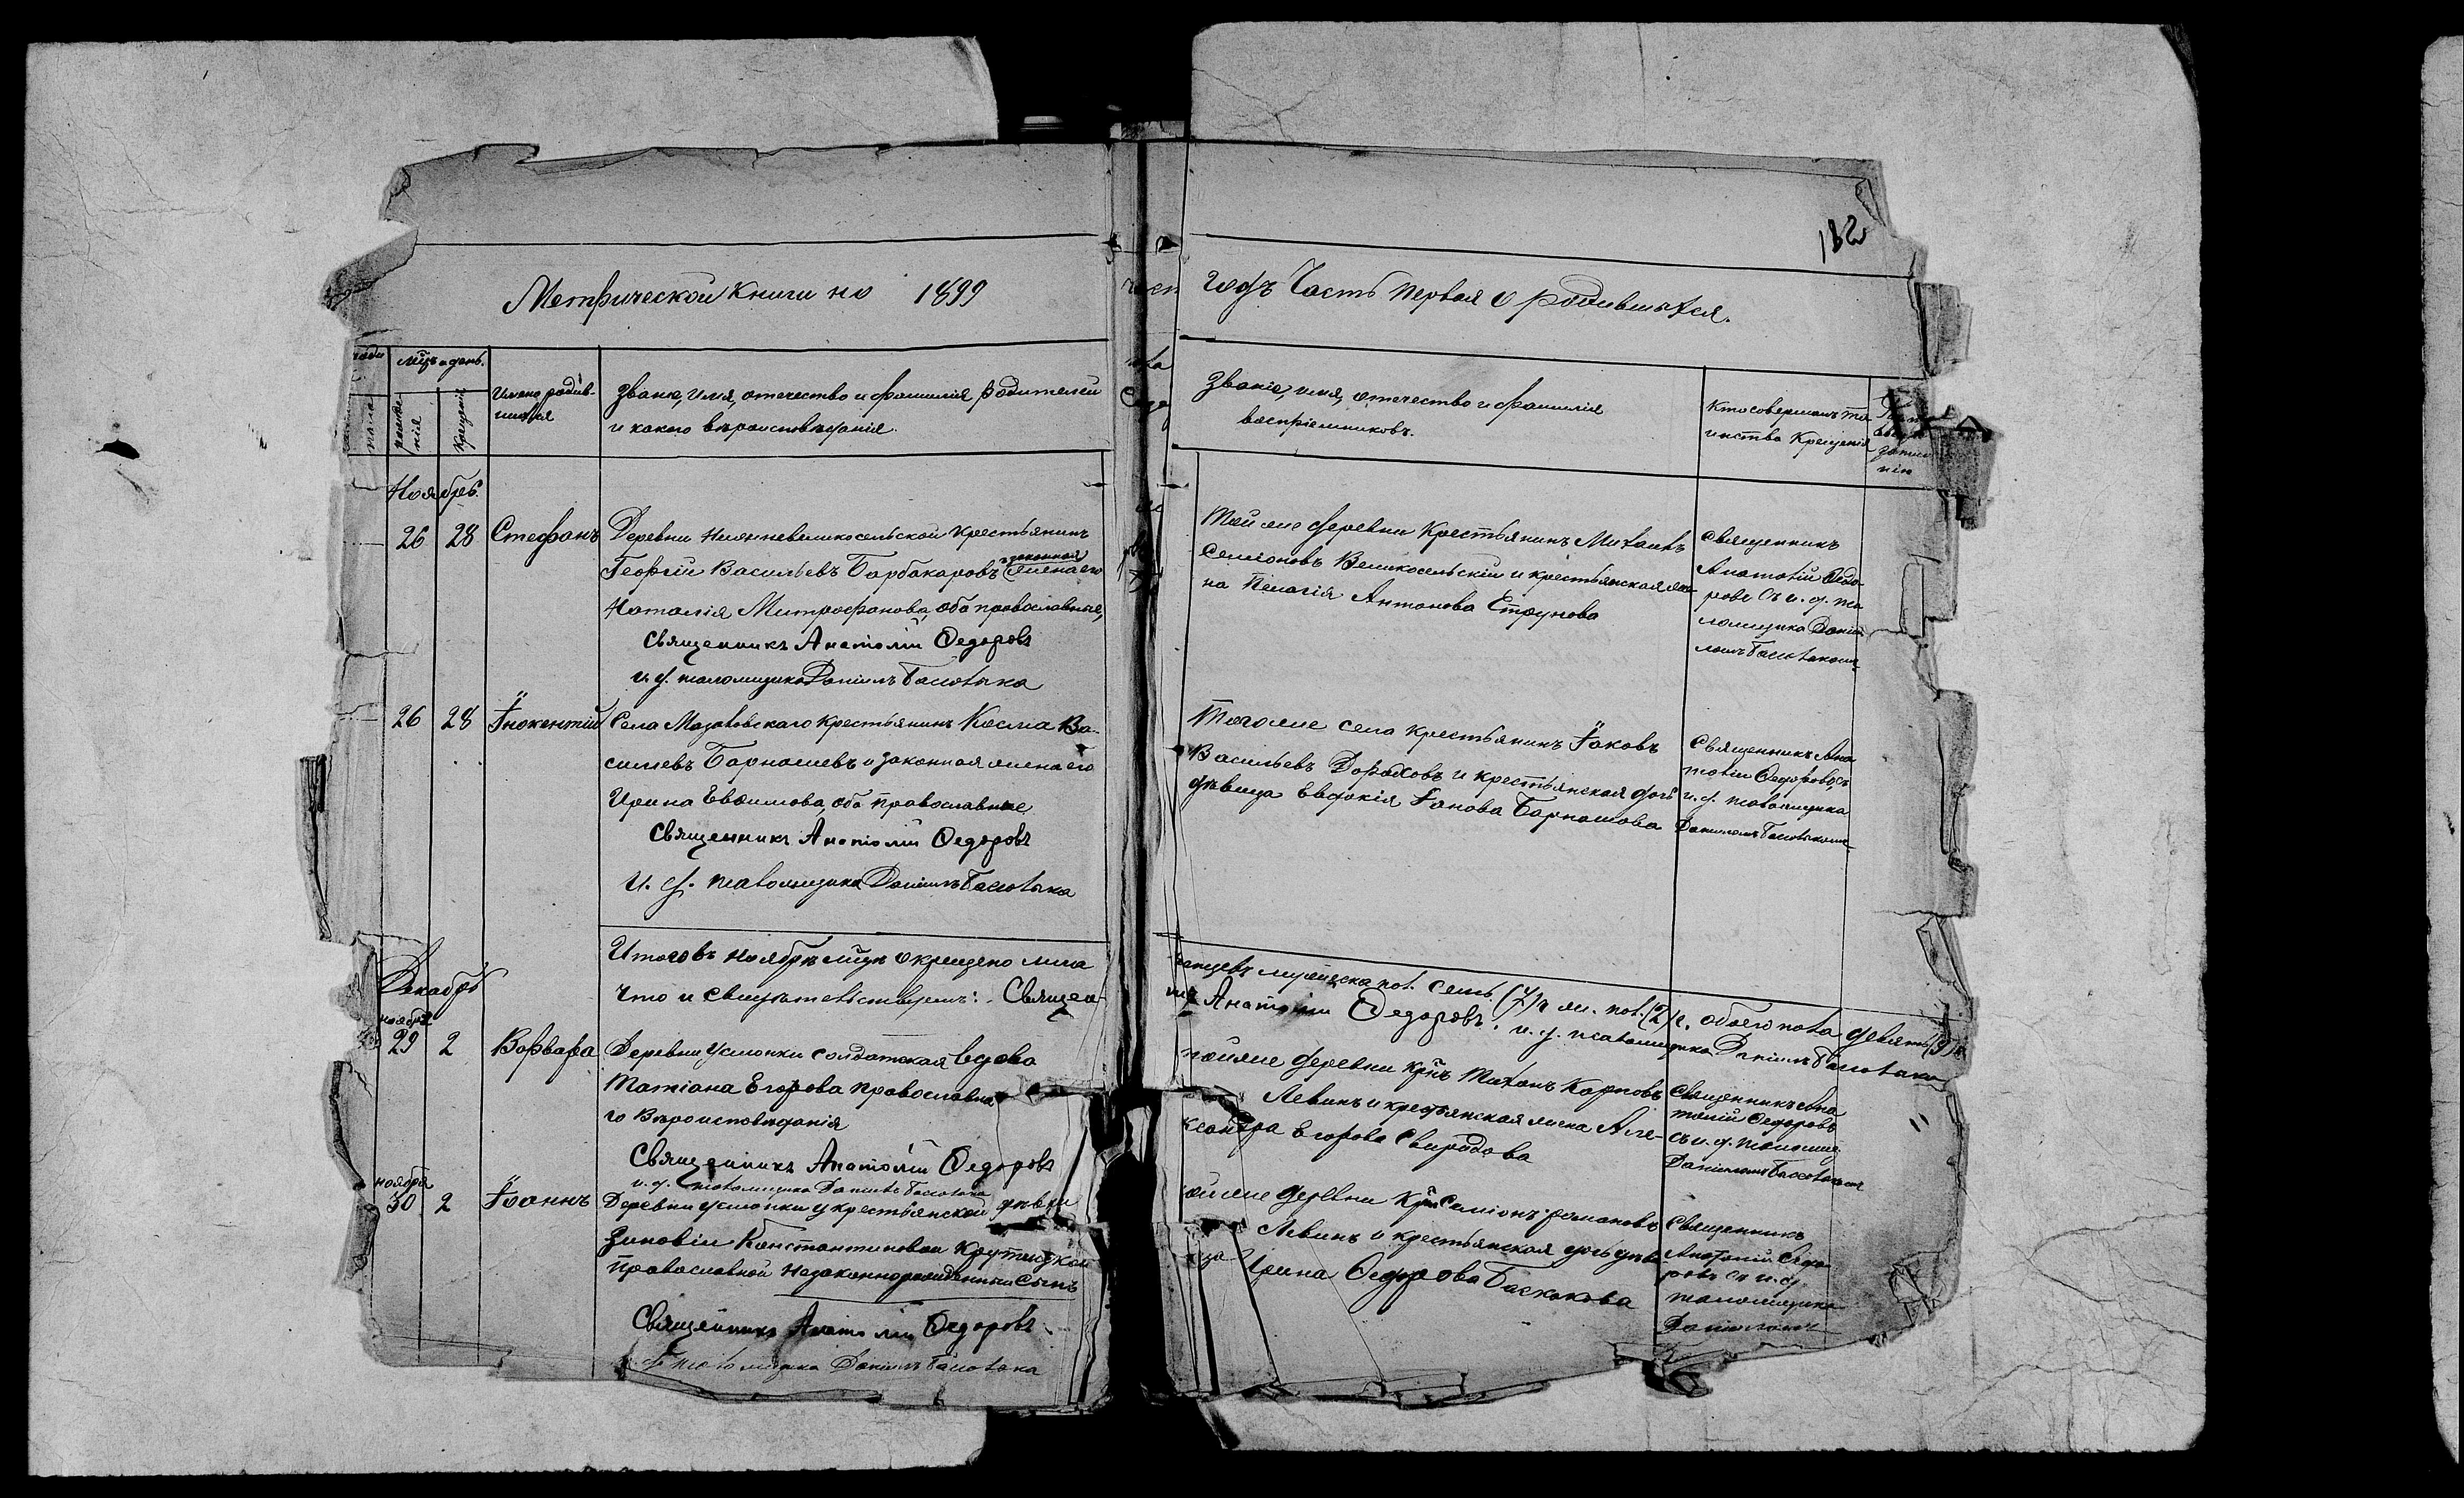 182
Метрической книги на 1899
годъ Часть первая о родившихся.
Мѣцъ и день.
Имена родив-
шихся
Званіе, имя, отечество и фамилія родителей
и какого вѣроисповѣданія.
Званіе, имя, отечество и фамилія
воспріемниковъ.
Кто совершалъ та
инство Крещенія
крещенія
Ноябрь.
26 28 Стефанъ
Деревни крестьянинъ
Георгій Васильевъ Барбакаровъ и законная жена его
Наталія Митрофанова, оба православные,
Священникъ Анатолій Ѳедоровъ
и. д. псаломщика Даніилъ
Той же деревни Крестьянинъ Михаилъ
Семіоновъ Великосельскій и крестьянская же-
на Пелагія Антонова Струнова
Священникъ
Анатолій Ѳедо-
ровъ съ и. д. пса
ломщика Даніи
ломъ
26 28 Інокентій
Села крестьянинъ Косма Ва-
сильевъ Барнашевъ и законная жена его
Ирина Евѳимова, оба православные
Священникъ Анатолій Ѳедоровъ
И. д. псаломщика Даніилъ
Того же села крестьянинъ Іаковъ
Васильевъ Дораховъ и крестьянская дочь
дѣвица Евдокія Іанова Барнашова
Священникъ Ана
толій Ѳедоровъ съ
и. д. псаломщика
Даніиломъ
Итого въ ноябрѣ мѣсцѣ окрещено мла
денцевъ мужеска пол. семь (7) и жен. пол. (2) и обоего пола девять (9)
Что и свидѣтельствуемъ: Священ-
никъ Анатолій Ѳедоровъ. и. д. псаломщика Даніилъ
Декабрь
ноября
29 2 Варвара
Деревни Усмонки солдатская вдова
Татіана Егорова православна
го вѣроисповѣданія
Священникъ Анатолій Ѳедоровъ
и. д. псаломщика Даніилъ
той же деревни крнъ Тихонъ Карповъ
Левинъ и крестьянская жена Але-
ксандра Егорова Свиридова
Священникъ Ана
толій Ѳедоровъ
съ и. д. псаломщ.
Даніиломъ
ноября
30 2 Іоаннъ
Деревни Усмонки у крестьянской дѣвки
Зиновіи Константиновой Крутицкой
православной незаконнорожденный сынъ
Священникъ Анатолій Ѳедоровъ
псаломщика Даніилъ
той же деревни Семіонъ Романовъ
Левинъ и крестьянская дочь дѣви-
ца Ирина Ѳедорова Баскакова
Священникъ
Анатолій Ѳедо-
ровъ съ и. д.
псаломщика
Даніиломъ